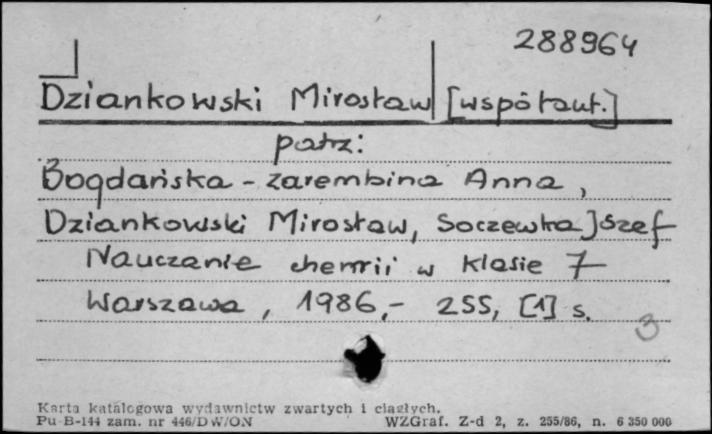 288964
Dziankowski Mirosław [współaut.]
patrz:
Bogdańska-Zarembina Anna,
Dziankowski Mirosław, Soczewka Józef
Nauczanie chemii w klasie 7
Warszawa, 1986,- 255, [1] s.
3
Karta katalogowa wydawnictw zwartych i ciągłych.
Pu-B-144 zam. nr 446/DW/ON WZGraf. Z-d 2, z. 255/86, n. 6 350 000